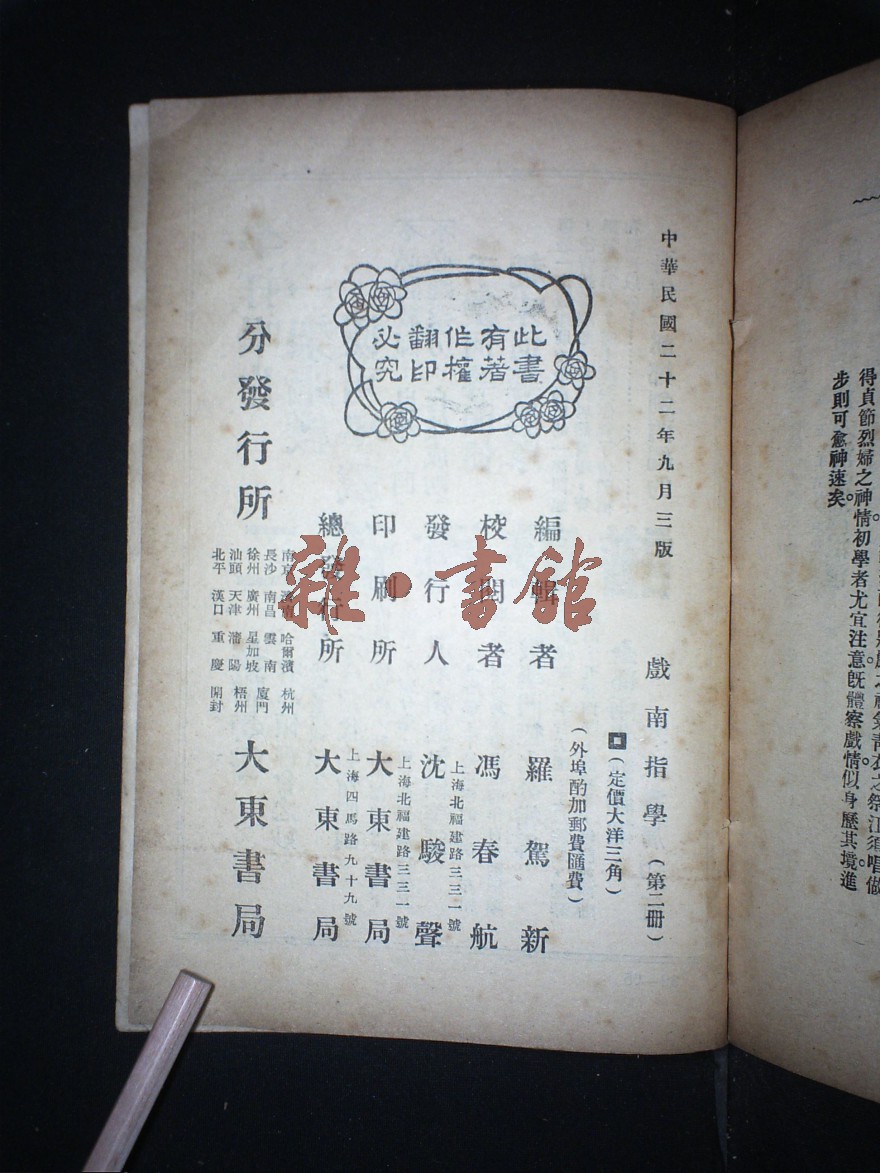 得貞節烈婦之神情。初學者尤宜注意既體察戲情似身歷其境進
步則可愈神速矣。
中華民國二十二年九月三版
戲南指學（第二冊）
（定價大洋三角）
（外埠酌加郵費匯費）
此書
有著
作權
翻印
必究
編輯者 羅駕新
校閱者 馮春航
上海北福建路三三一號
發行人 沈駿聲
上海北福建路三三一號
印刷所 大東書局
上海四馬路九十九號
總發行所 大東書局
南京 濟南 哈爾濱 杭州
長沙 南昌 雲南 廈門
徐州 廣州 星加坡
汕頭 天津 瀋陽 梧州
北平 漢口 重慶 開封
分發行所 大東書局
雜·書館